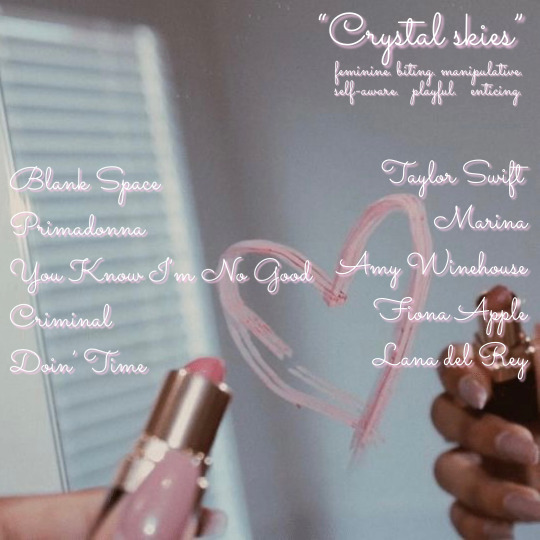 “Crystal skies”
feminine. biting. manipulative.
self-aware. playful. enticing.
Blank Space Taylor Swift
Primadonna Marina
You Know I'm No Good Amy Winehouse
Criminal Fiona Apple
Doin' Time Lana del Rey